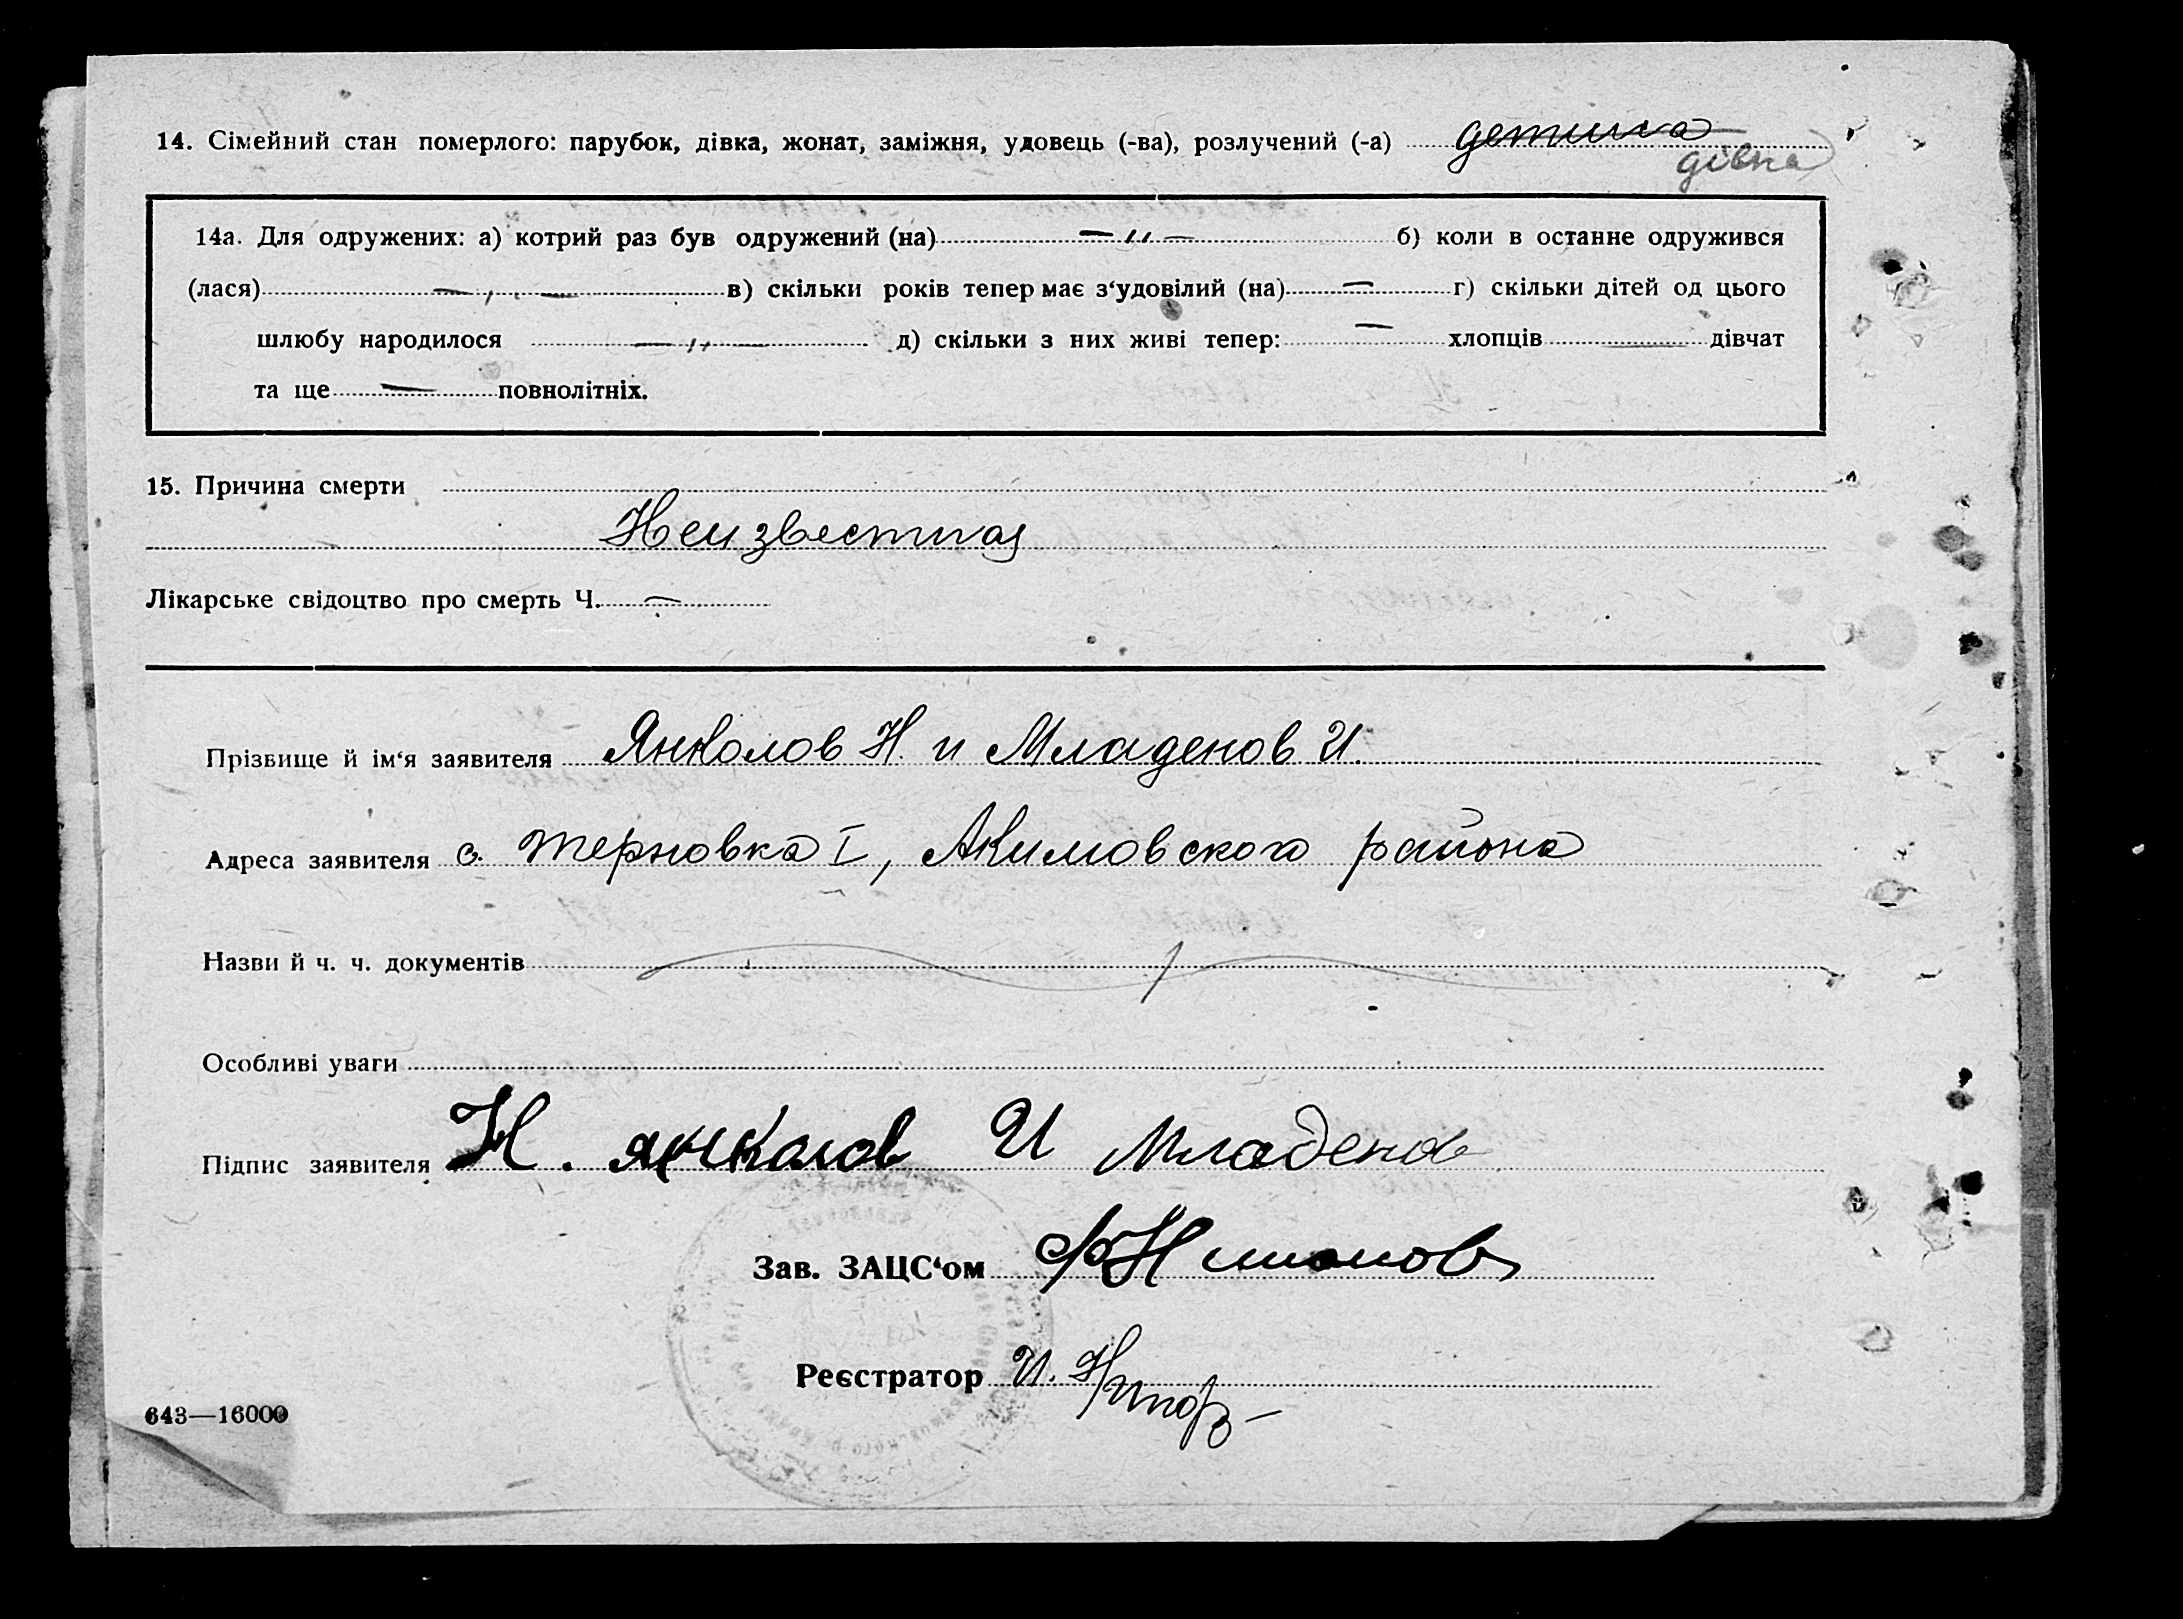 14. Сімейний стан померлого: парубок, дівка, жонат, заміжня, удовець (-ва), розлучений (-а) детина
дівка
14а. Для одружених: а) котрий раз був одружений (на) — " — б) коли в останне одружився
(лася) — " — в) скільки років тепер має з‘удовілий (на) — г) скільки дітей од цього
шлюбу народилося — " — д) скільки з них живі тепер: — хлопців — дівчат
та ще — повнолітніх.
15. Причина смерти
Неизвестная
Лікарське свідоцтво про смерть Ч. —
Прізвище й ім‘я заявителя Янколов Н. и Младенов И.
Адреса заявителя с. Терновка I, Акимовского района
Назви й ч. ч. документів
Особливі уваги
Підпис заявителя Н. Янколов И Младенов
Зав. ЗАЦС‘ом
Реєстратор И.
643—16000